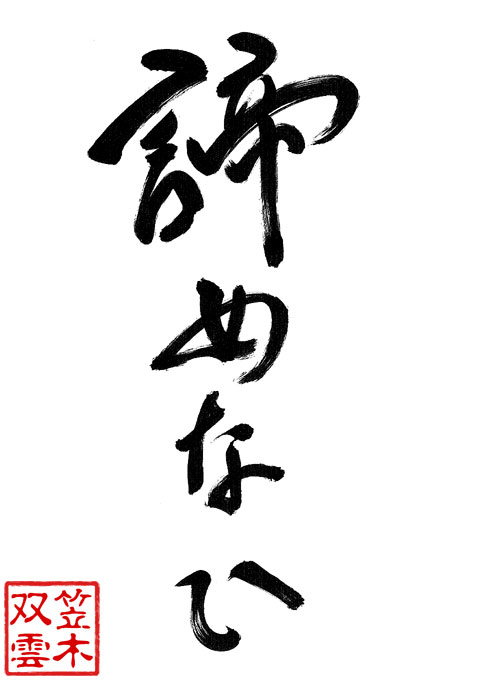 諦めなひ
笠木
双雲